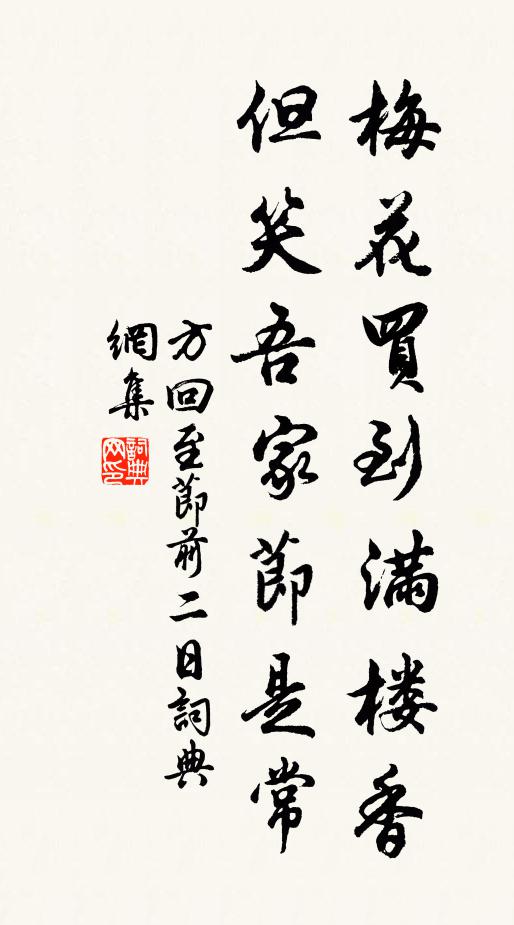 梅花買到滿楼香
但笑吾家節是常
方回至節前二日詞典
網集
詞典網印